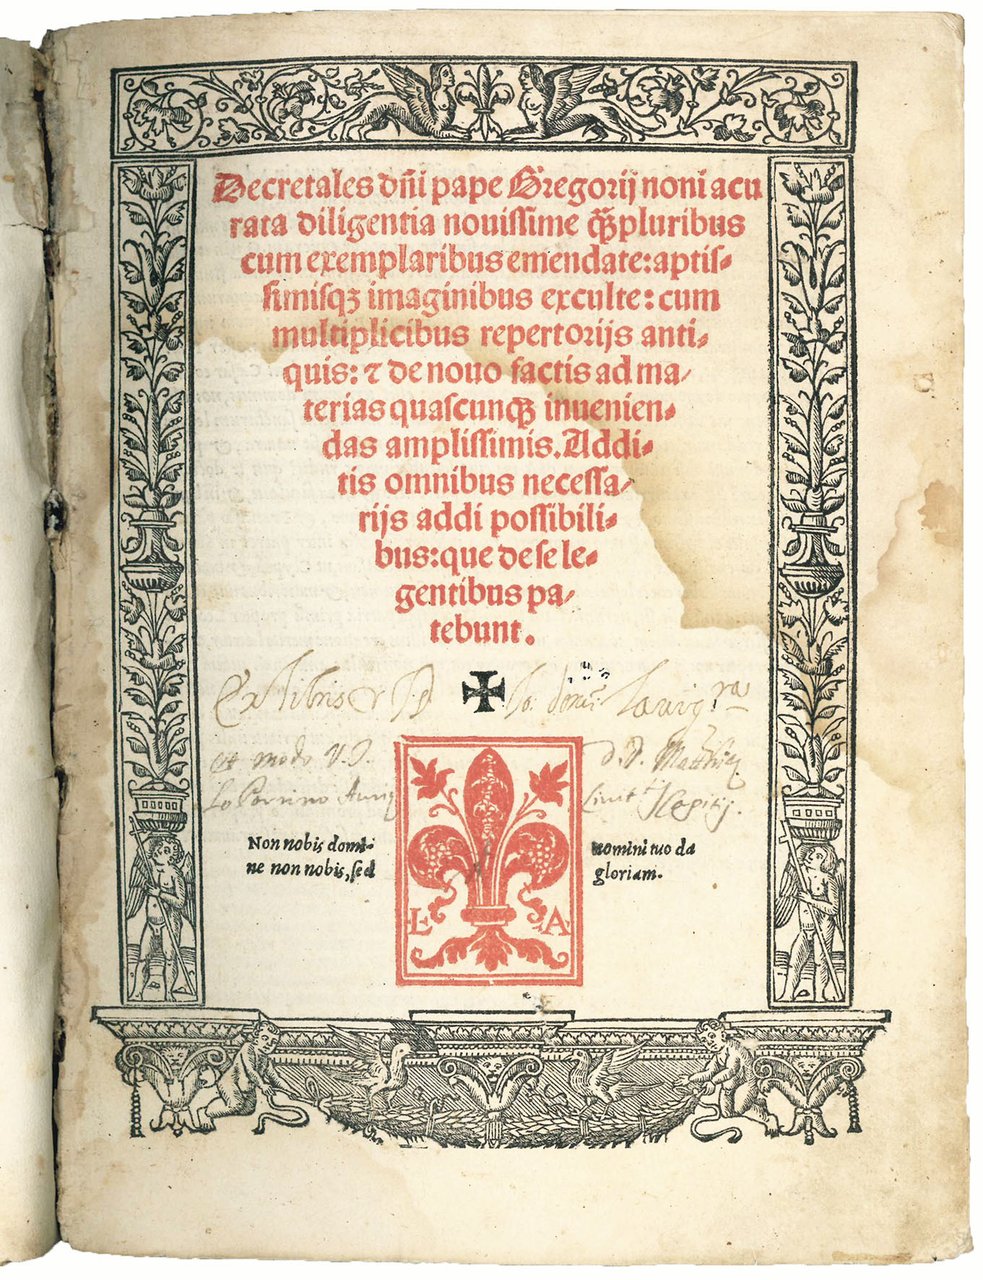 Decretales dñi pape Gregorij noni acu
rata diligentia nouissime q̃pluribus
cum exemplaribus emendate: aptis-
simisqꝫ imaginibus exculte: cum
multiplicibus repertorijs anti-
quis: ⁊ de nouo factis ad ma-
terias quascunqꝫ inuenien-
das amplissimis. Addi-
tis omnibus necessa-
rijs addi possibili-
bus: que de se le-
gentibus pa-
tebunt.
Ex libris
et modo V. D. D. D.
Non nobis domi- nomini tuo da
ne non nobis, sed gloriam.
L A